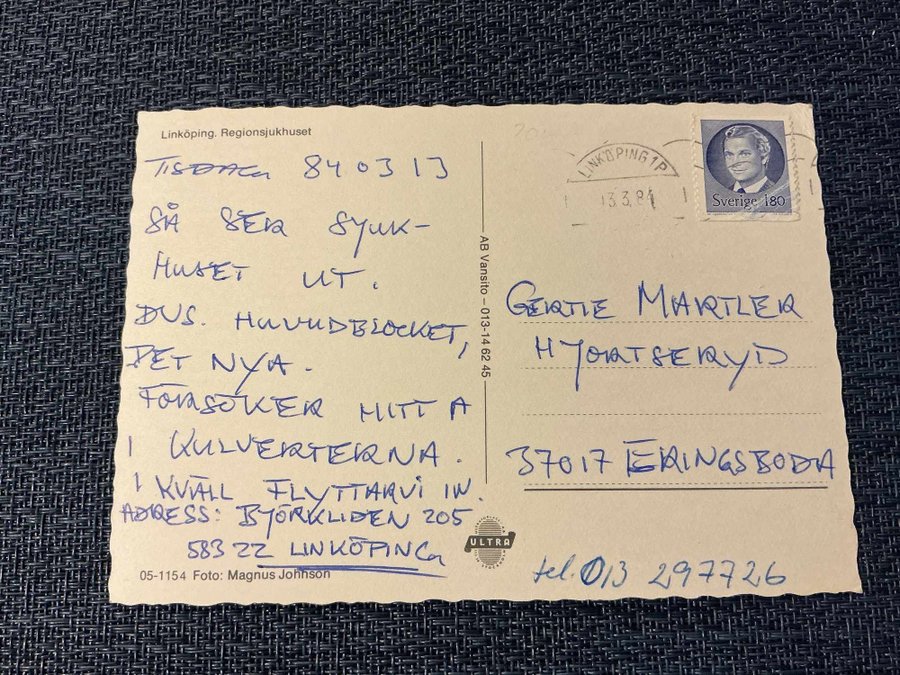 Linköping. Regionsjukhuset
TISDAG 840313
SÅ SER SJUK-
HUSET UT.
DVS. HUVUDBLOCKET,
DET NYA.
FÖRSÖKER HITTA
I KULVERTERNA.
I KVÄLL FLYTTAR VI IN.
ADRESS: BJÖRKLIDEN 205
583 22 LINKÖPING
05-1154 Foto: Magnus Johnson
AB Vansito – 013-14 62 45
ULTRA
LINKÖPING 1P
13.3.84
Sverige 180
GERTIE MARTLER
HJORTSERYD
37017 ERINGSBODA
tel. 013 297726